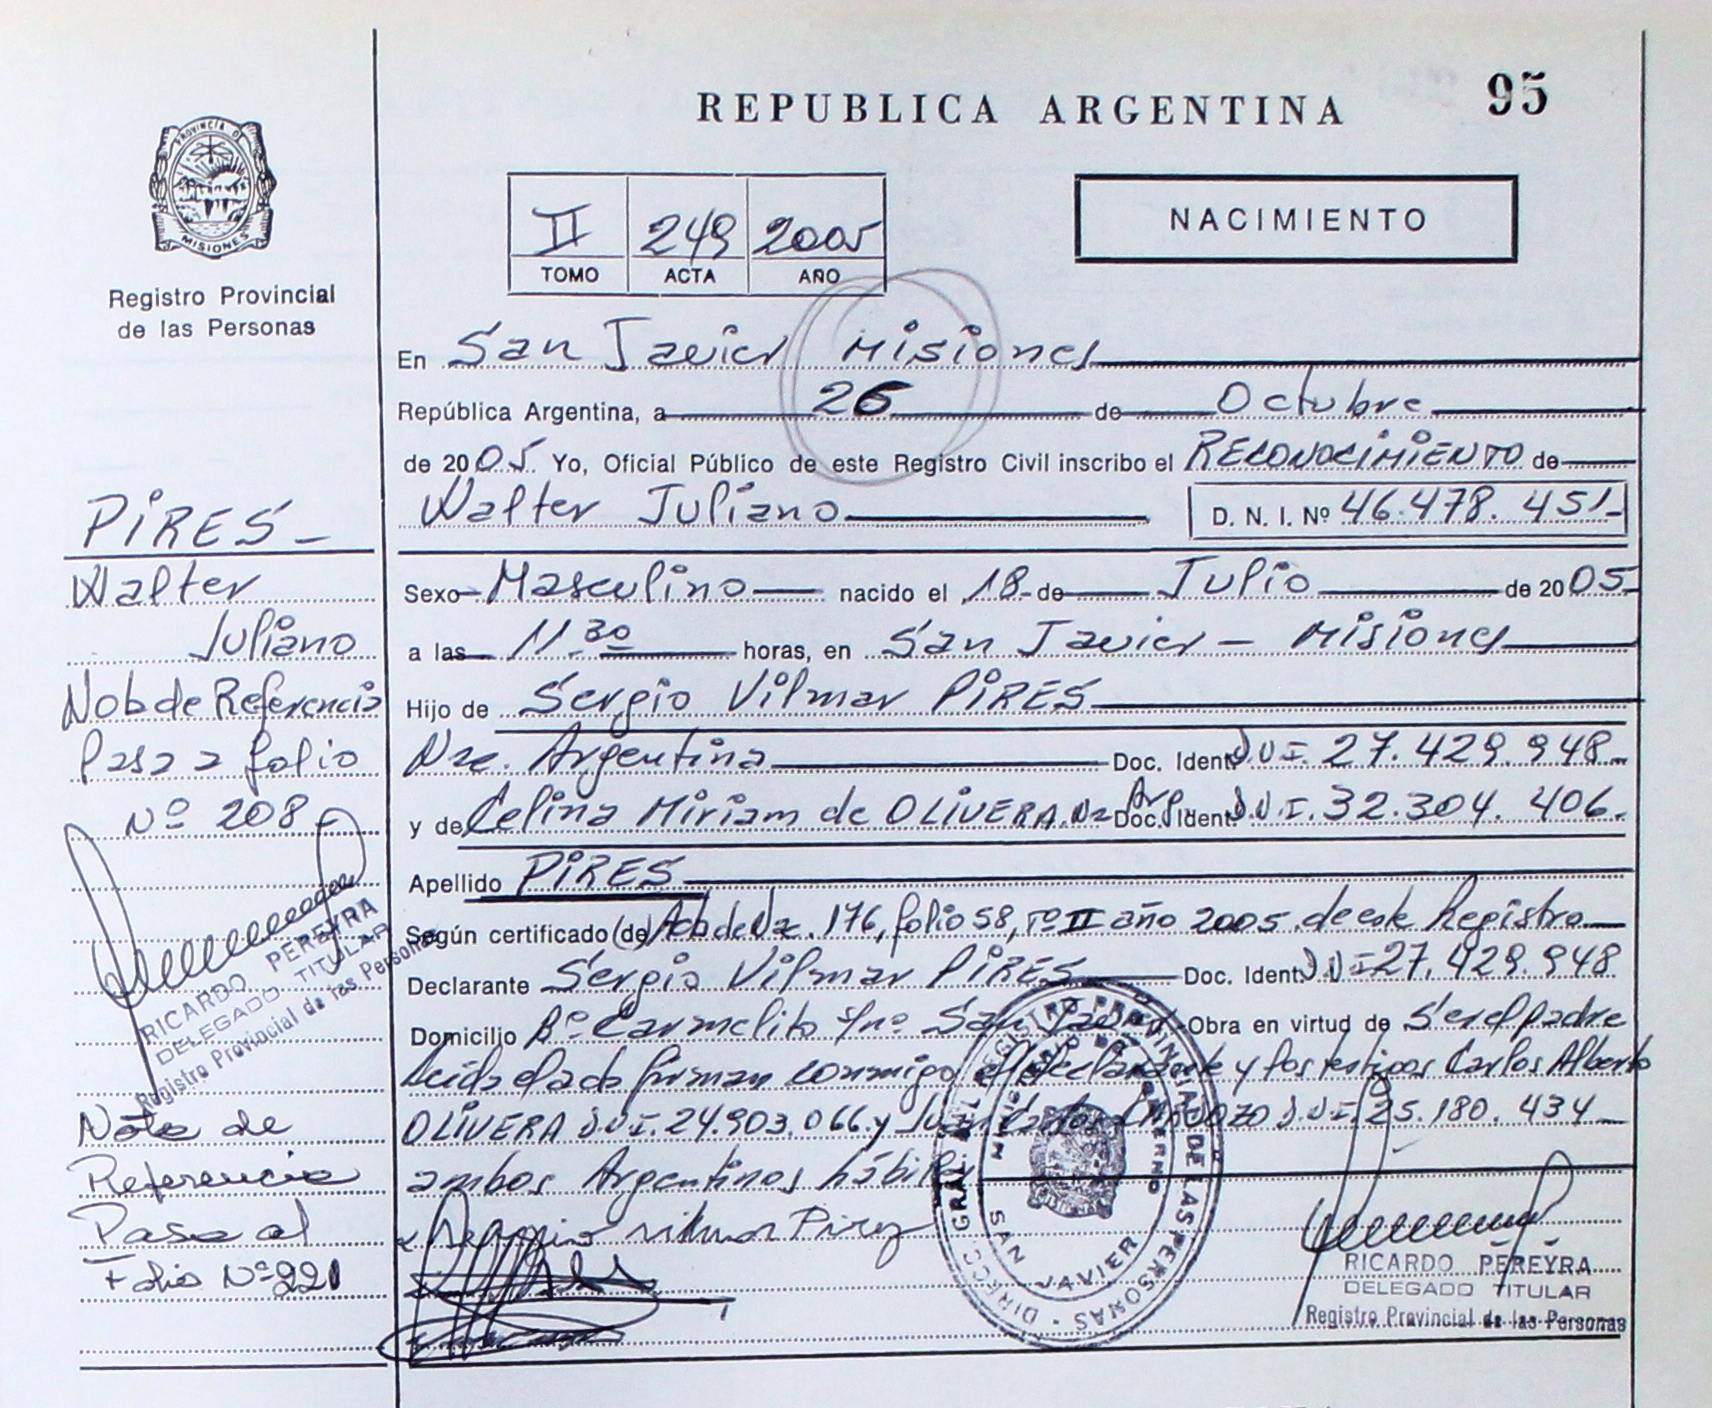 REPUBLICA ARGENTINA
95
PROVINCIA DE
MISIONES
Registro Provincial
de las Personas
II 249 2005
TOMO ACTA AÑO
NACIMIENTO
En San Javier Misiones
República Argentina, a 26 de Octubre
de 2005. Yo, Oficial Público de este Registro Civil inscribo el RECONOCIMIENTO de
Walter Juliano D. N. I. Nº 46.478.451-
Sexo Masculino nacido el 18 de Julio de 2005
a las 11.30 horas, en San Javier - Misiones
Hijo de Sergio Vilmar PIRES
Nac. Argentina Doc. Ident. D.N.I. 27.429.948
y de Celina Miriam de OLIVERA. Na Arg. Doc. Ident. D.N.I. 32.304.406.
Apellido PIRES
Según certificado (de) Acta de Nac. 176, folio 58, Tº II año 2005 de este Registro
Declarante Sergio Vilmar PIRES Doc. Ident. D.N.I 27.429.948
Domicilio Bº Carmelito S/nº San Javier Obra en virtud de Ser el padre
Leída el acta firman conmigo el declarante y los testigos Carlos Alberto
OLIVERA D.N.I. 24.903.066 y Juan D.N.I. 25.180.434
ambos Argentinos hábiles
Sergio vilmar Pirez
PIRES-
Walter
Juliano
Nota de Referencia
Pasa a folio
Nº 208
RICARDO PEREYRA
DELEGADO TITULAR
Registro Provincial de las Personas
Nota de
Referencia
Pasa al
Folio Nº 221
DIREC. GRAL. DEL REGISTRO PROVINCIAL DE LAS PERSONAS
MINISTERIO DE GOBIERNO
SAN JAVIER
RICARDO PEREYRA
DELEGADO TITULAR
Registro Provincial de las Personas